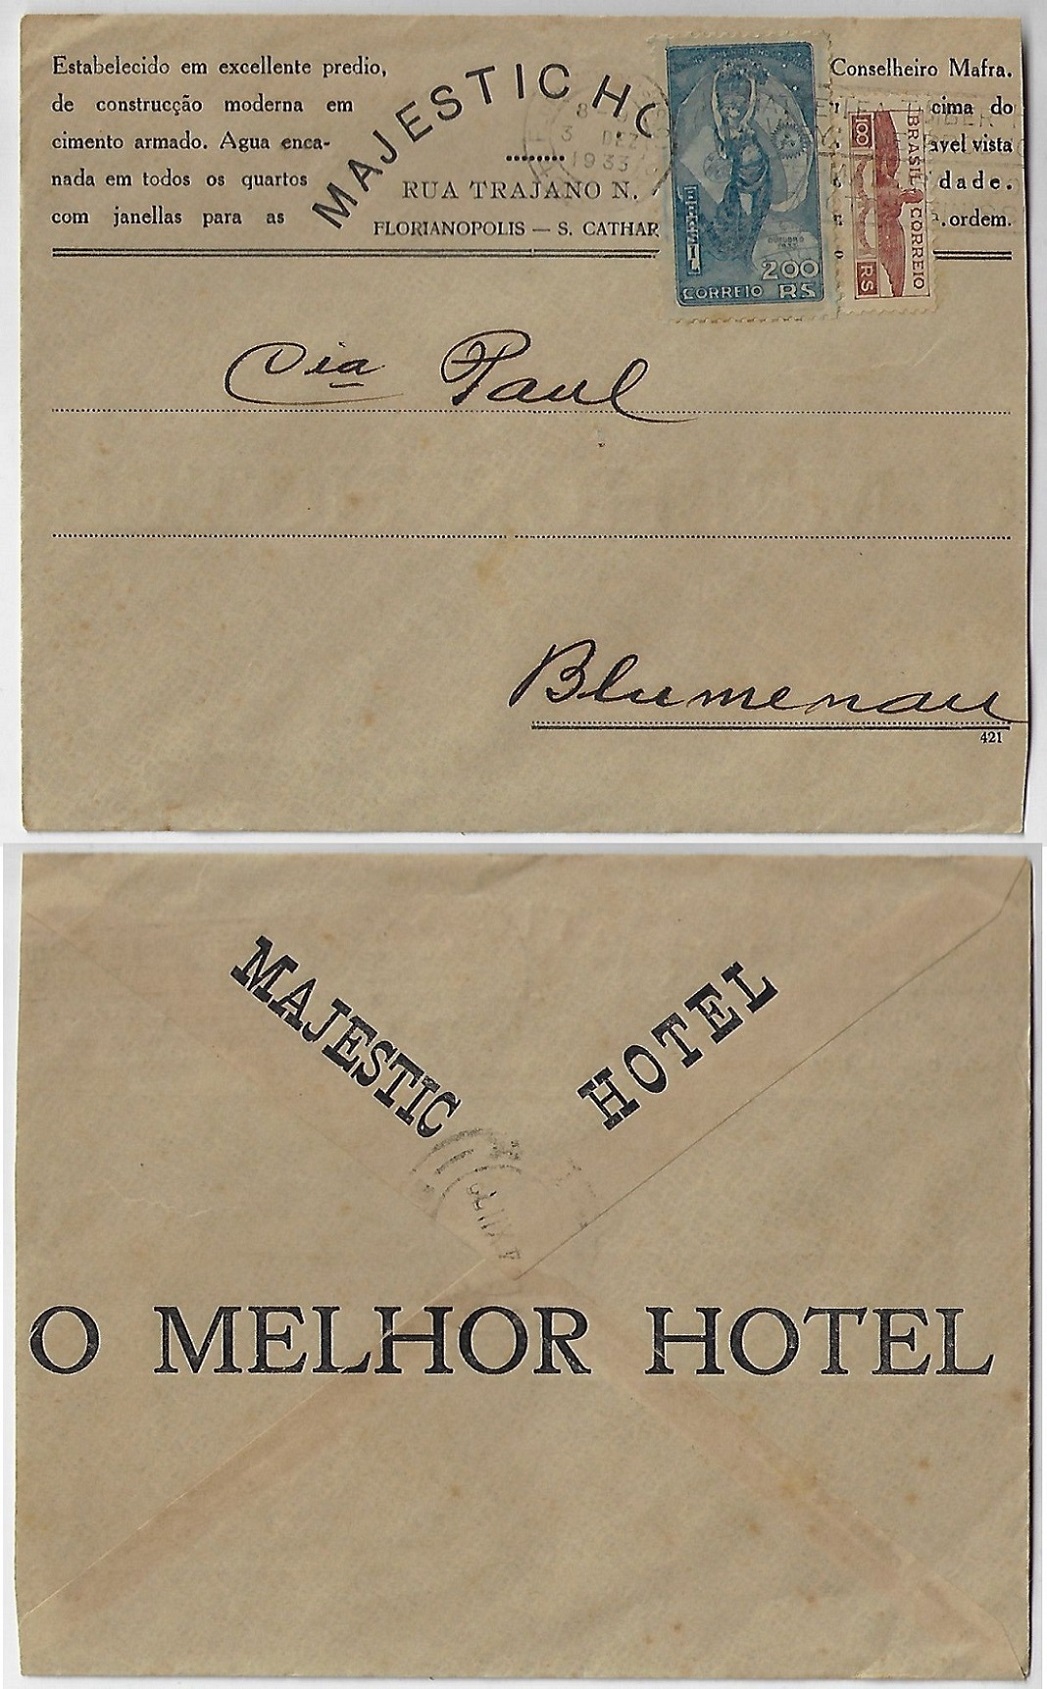 Estabelecido em excellente predio,
de construcção moderna em
cimento armado. Agua enca-
nada em todos os quartos
com janellas para as
MAJESTIC
RUA TRAJANO N.
FLORIANOPOLIS — S.
Conselheiro Mafra.
cima do
vista
ordem.
DEZ
1933
BRASIL
200
CORREIO RS
BRASIL CORREIO
100 RS
Cia Paul
Blumenau
421
MAJESTIC HOTEL
O MELHOR HOTEL